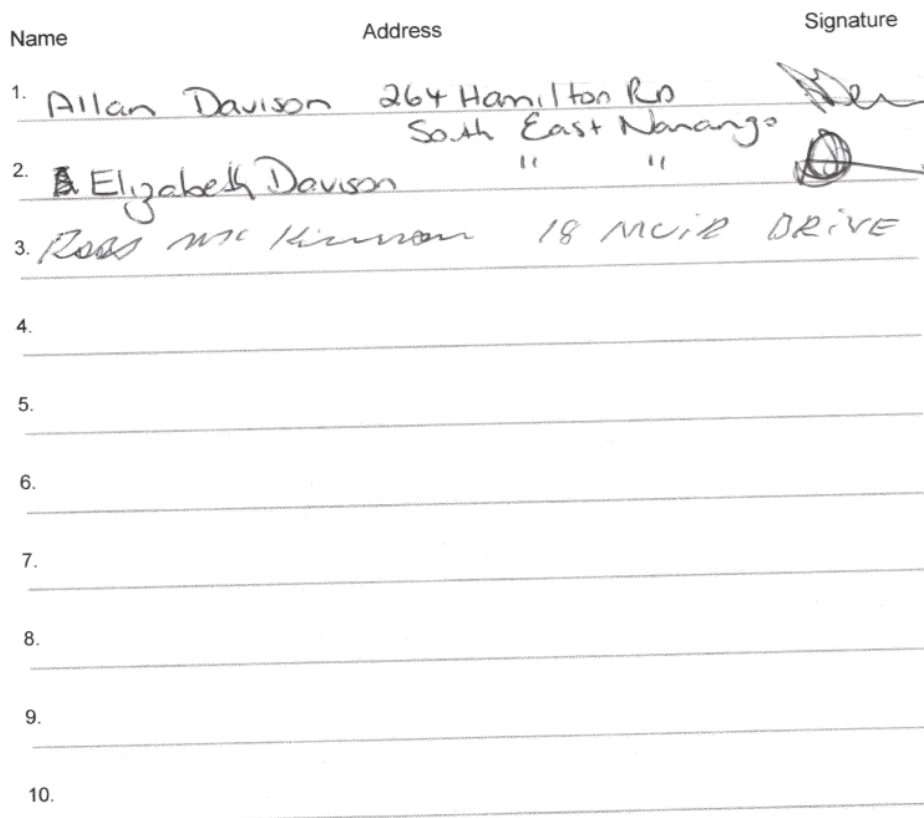 Name Address Signature
1. Allan Davison 264 Hamilton RD
South East Nanango
2. Elizabeth Davison " "
3. Ross McKinnon 18 MUIR DRIVE
4.
5.
6.
7.
8.
9.
10.